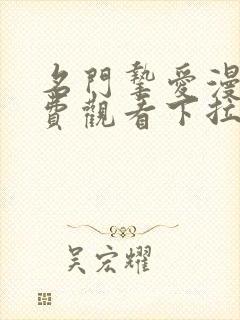 名門摯愛漫
費觀看下拉
吴宏耀